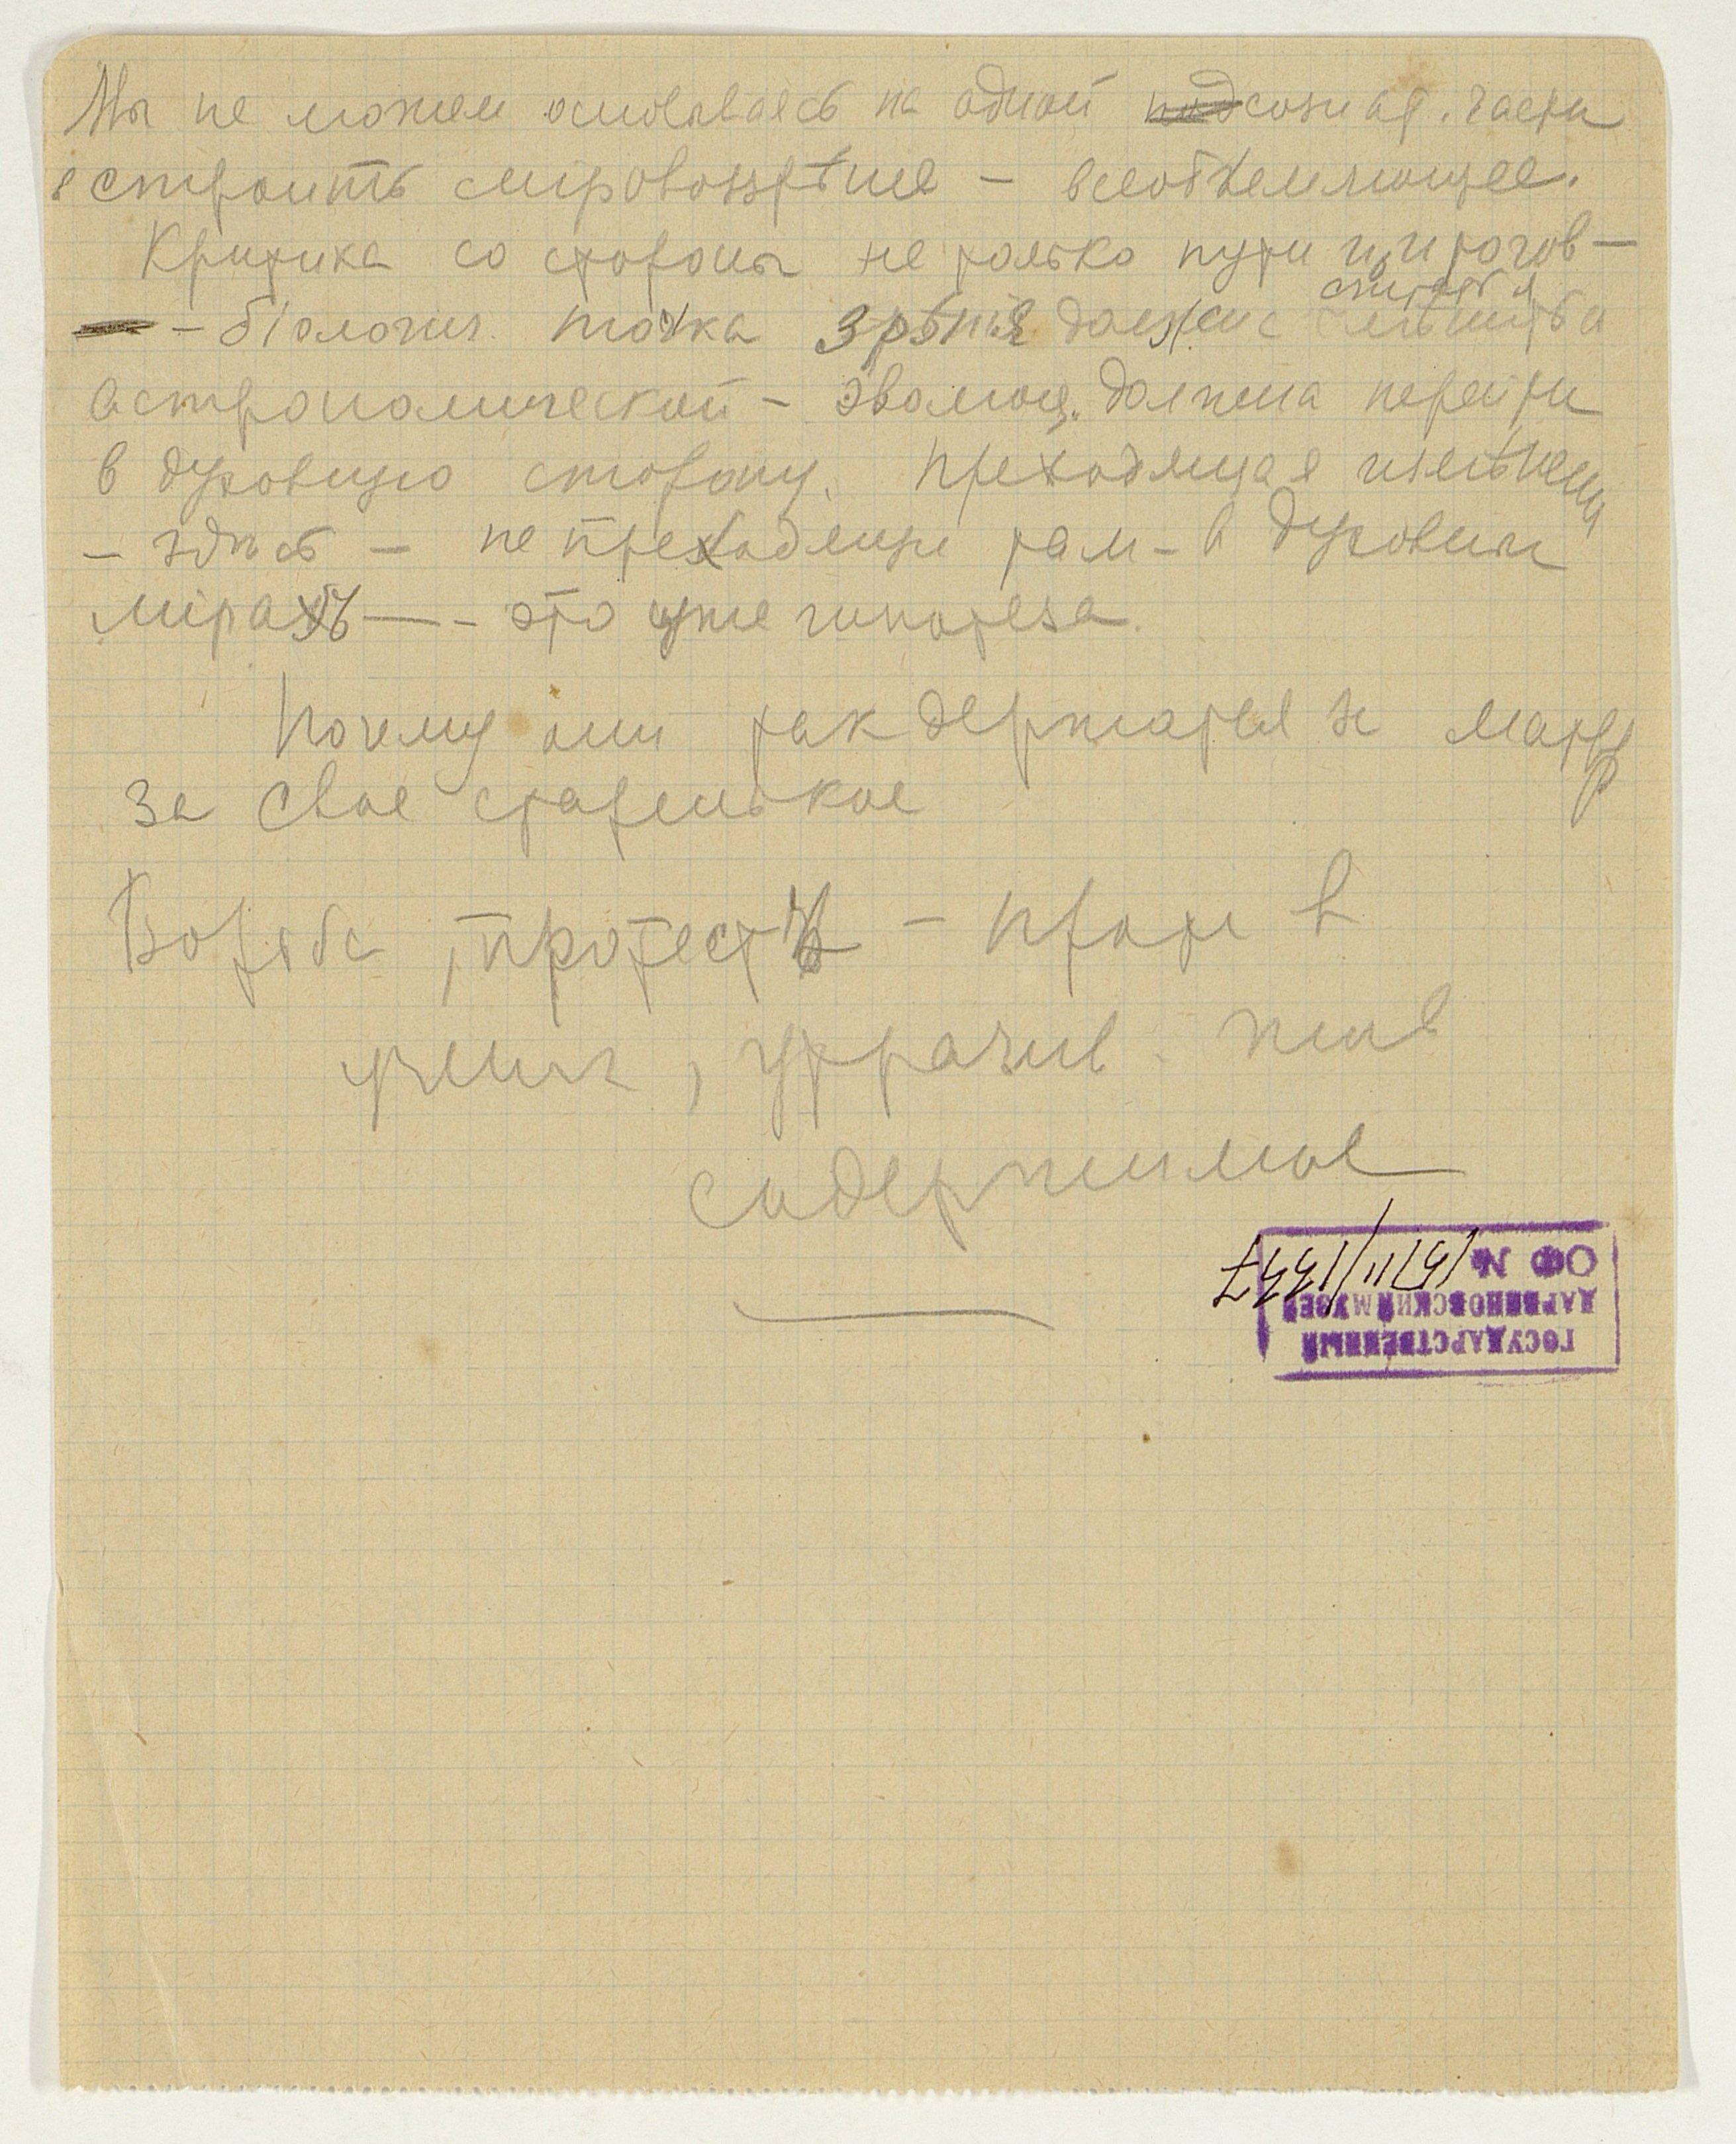 Мы не можем основываясь на одной подсознат. части
строить мiровоззрѣнiе – всеобъемлющее.
Критика со стороны не только пути и итогов –
– бiологич. точка зрѣнiя должна
астрономической – эволюц. должна перейти
в духовную сторону. Преходящая
– здѣсь – не преходящи там – в духовных
мiрахъ — – это уже гипотеза.
Почему они так держатся за матер
за свое старенькое
Борьба, протестъ – прот в
, утратив.
содержимое
ГОСУДАРСТВЕННЫЙ
ДАРВИНОВСКИЙ МУЗЕЙ
ОФ №